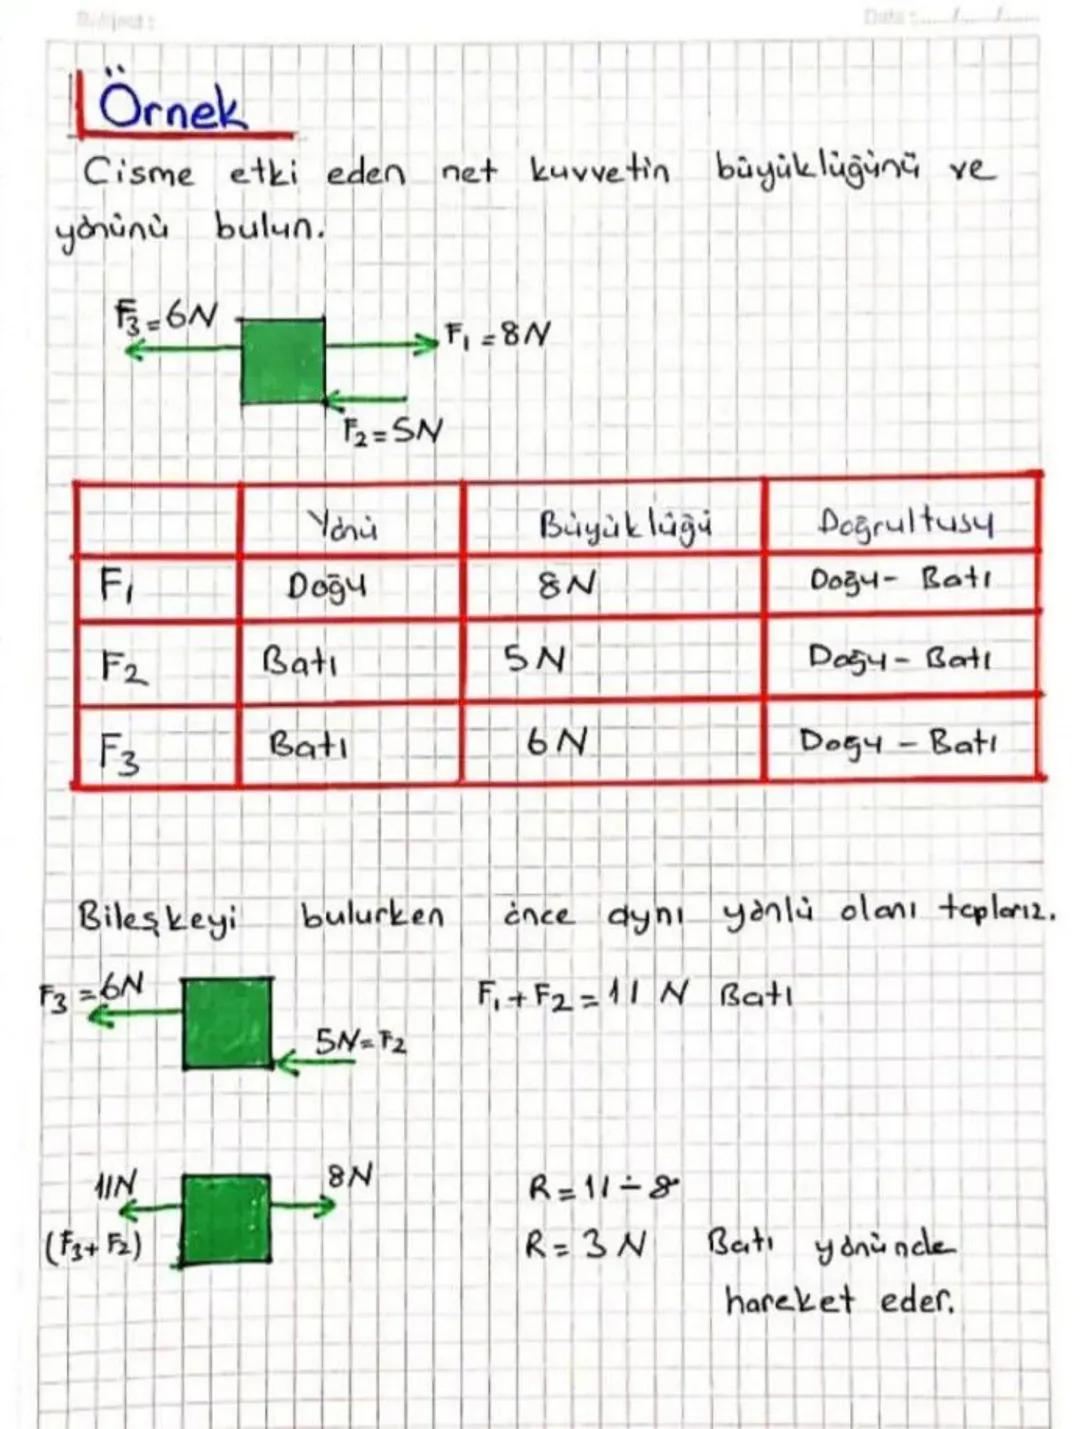 Subject:
Date:....../....../......
Örnek
Cisme etki eden net kuvvetin büyüklüğünü ve
yönünü bulun.
F3=6N
F1=8N
F2=5N
Yönü Büyüklüğü Doğrultusu
F1 Doğu 8N Doğu-Batı
F2 Batı 5N Doğu-Batı
F3 Batı 6N Doğu-Batı
Bileşkeyi bulurken önce aynı yönlü olanı toplarız.
F3=6N
F1+F2=11 N Batı
5N=F2
11N
8N
(F3+F2)
R=11-8
R=3N Batı yönünde
hareket eder.